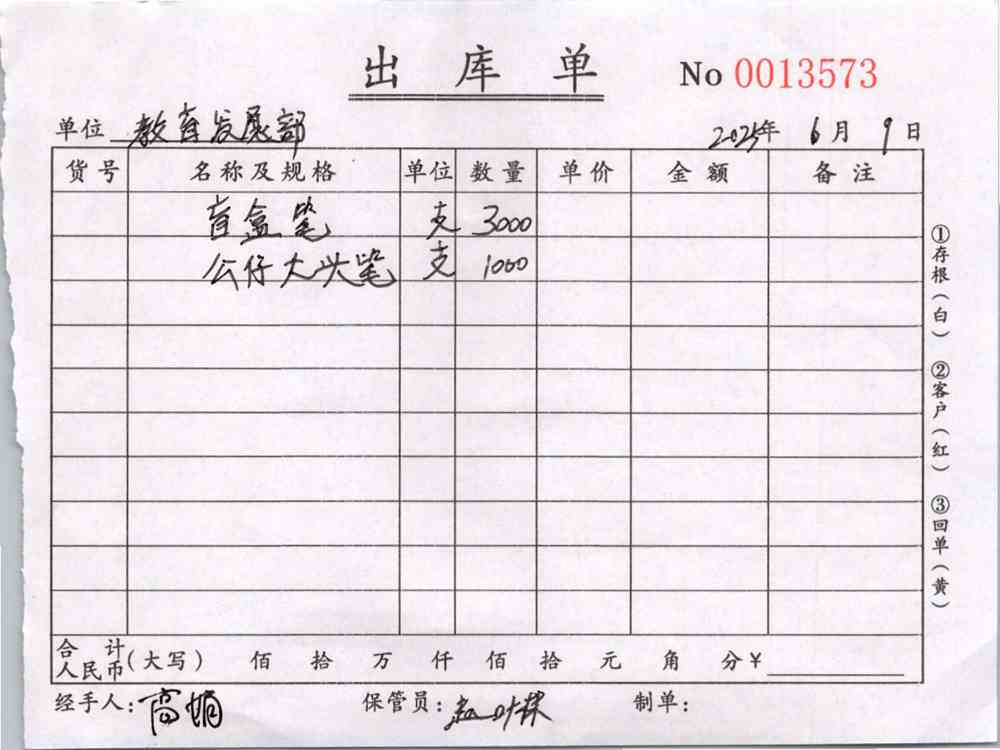 出库单 No 0013573
单位 教育发展部 2025年 6月 9日
货号 名称及规格 单位 数量 单价 金额 备注
盲盒笔 支 3000
公仔大头笔 支 1000
①存根(白) ②客户(红) ③回单(黄)
合计人民币(大写) 佰 拾 万 仟 佰 拾 元 角 分¥
经手人:高娟 保管员:赵 制单: